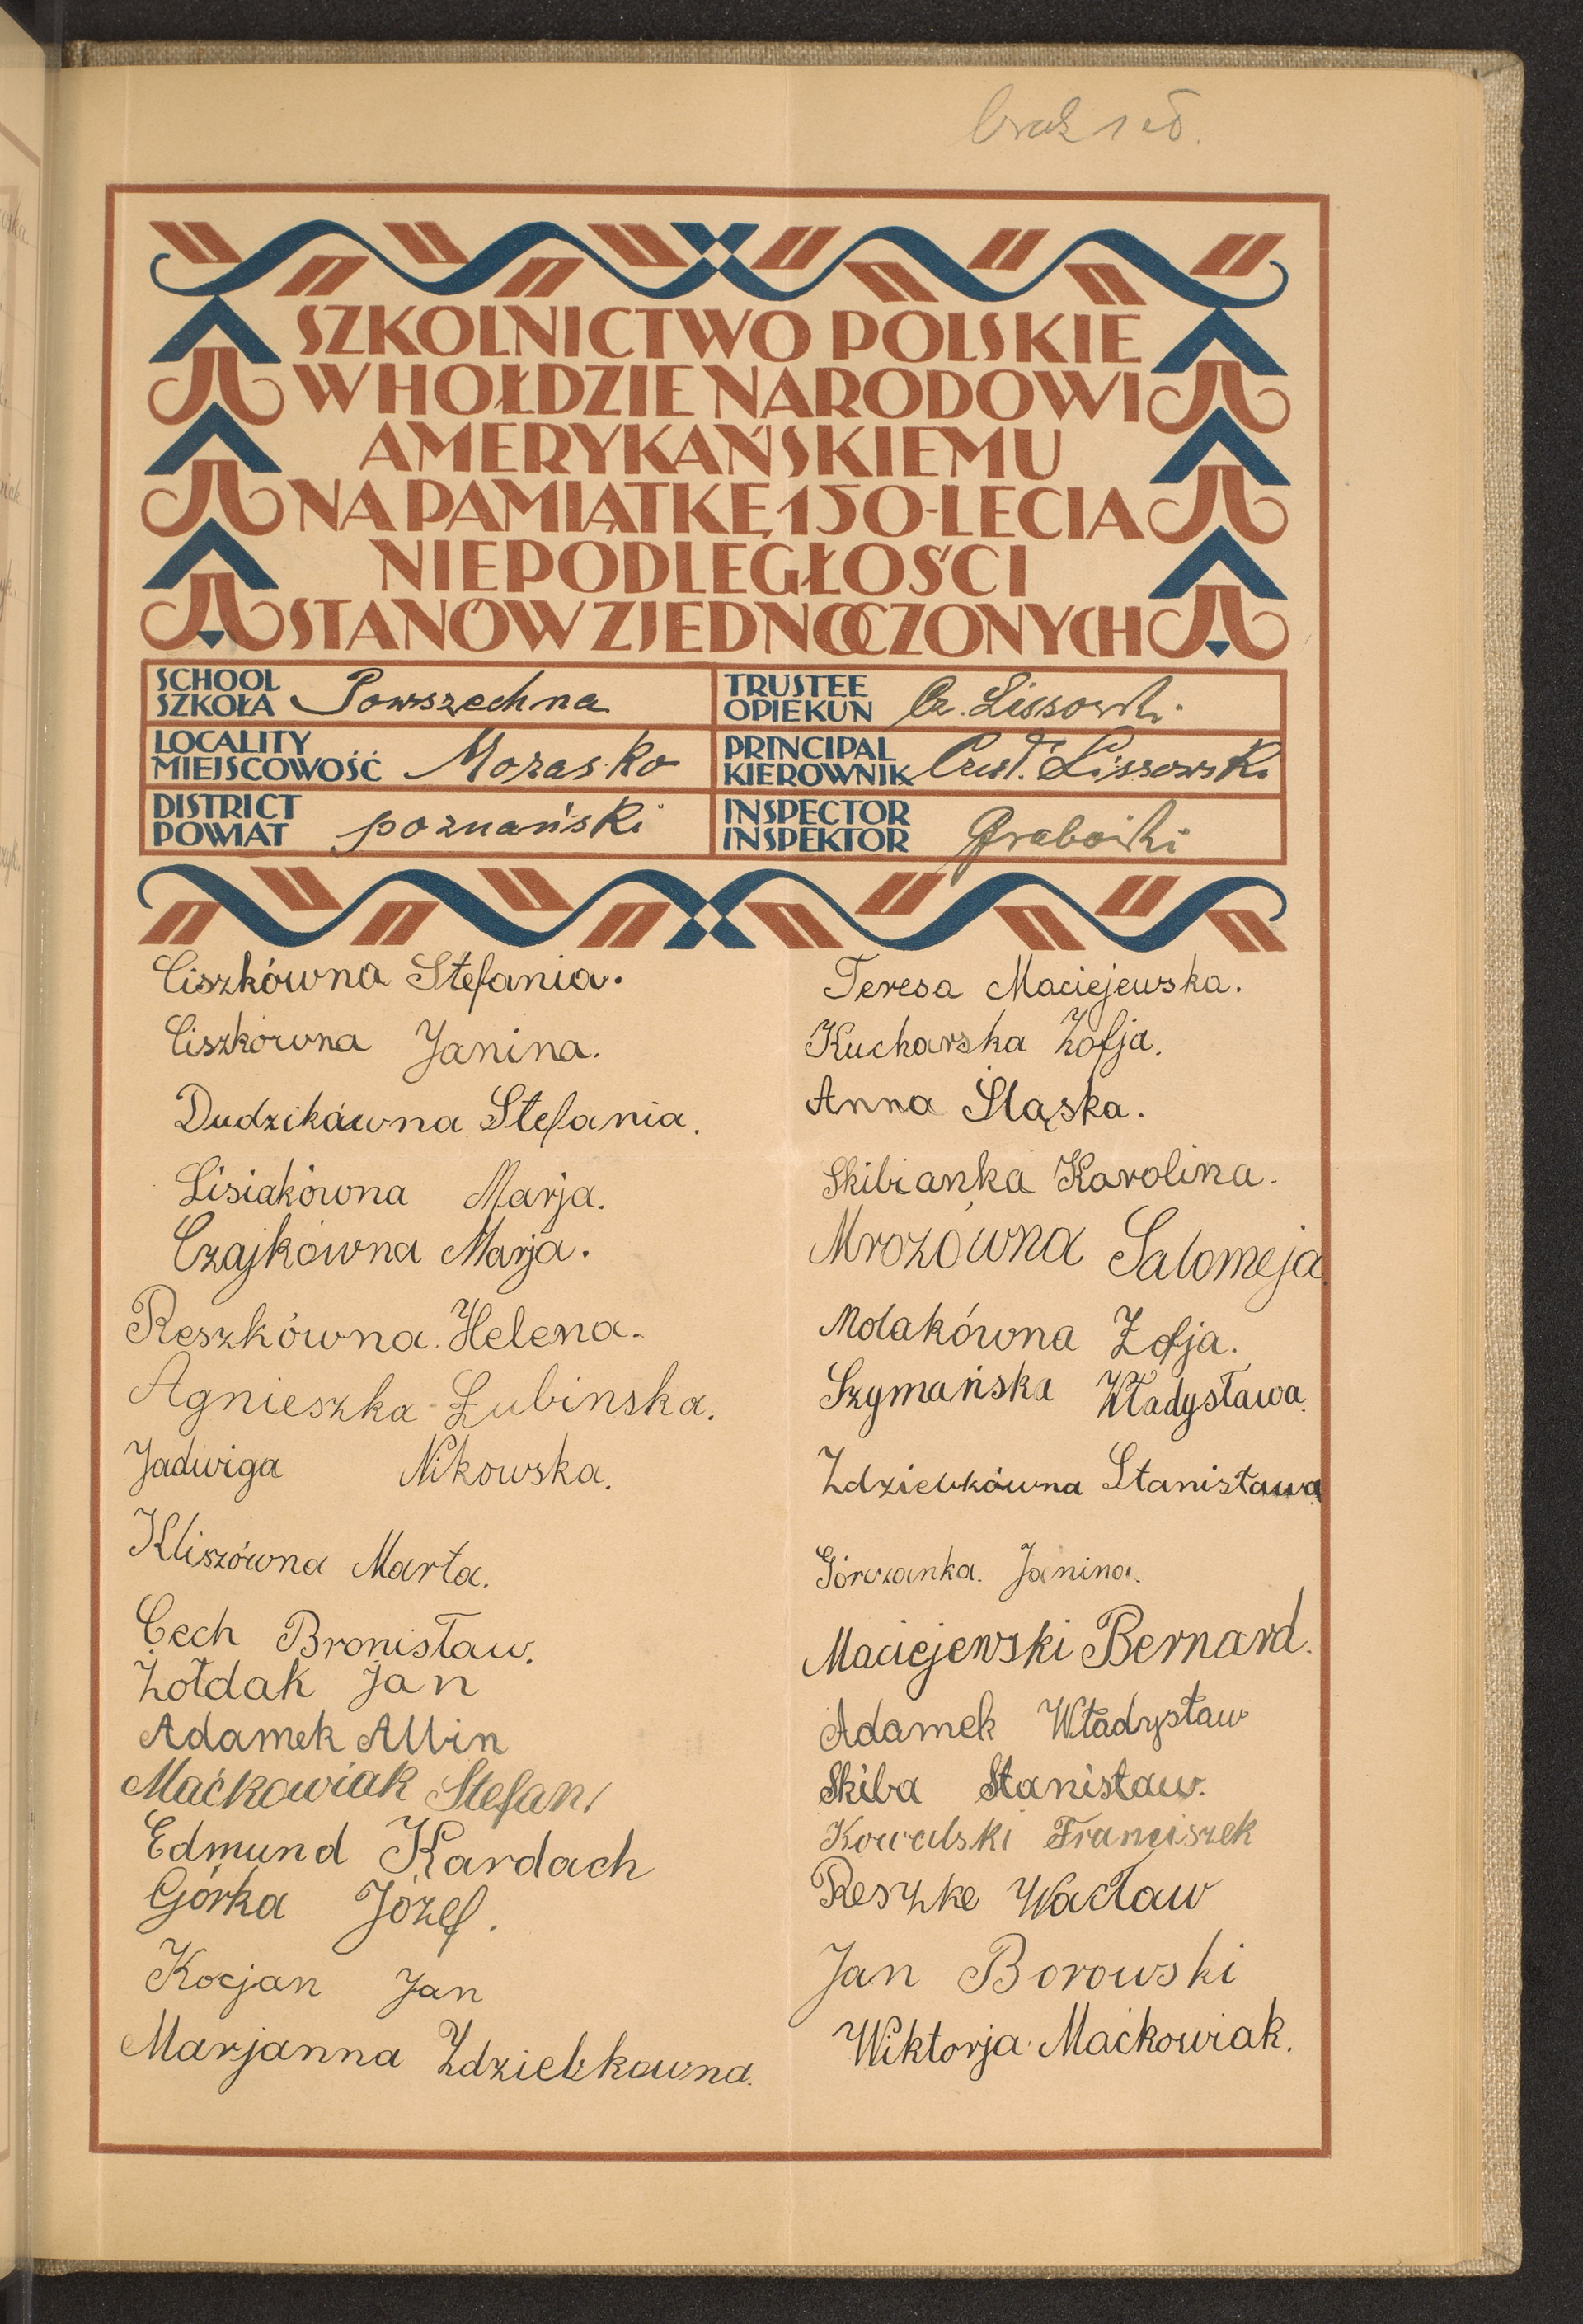 brak 1 zł.
SZKOLNICTWO POLSKIE
W HOŁDZIE NARODOWI
AMERYKAŃSKIEMU
NA PAMIĄTKĘ 150-LECIA
NIEPODLEGŁOŚCI
STANÓW ZJEDNOCZONYCH
SCHOOL
SZKOŁA Powszechna
TRUSTEE
OPIEKUN Cz. Lissowski.
LOCALITY
MIEJSCOWOŚĆ Morasko
PRINCIPAL
KIEROWNIK Lissowski
DISTRICT
POWIAT poznański
INSPECTOR
INSPEKTOR
Ciszkówna Stefania.
Ciszkówna Janina.
Dudzikówna Stefania.
Lisiakówna Marja.
Czajkówna Marja.
Reszkówna. Helena.
Agnieszka Łubinska.
Jadwiga Nikowska.
Kliszówna Marta.
Cech Bronisław.
Żołdak Jan
Adamek Albin
Maćkowiak Stefan
Edmund Kardach
Górka Józef.
Kocjan Jan
Marjanna Zdziebkowna.
Teresa Maciejewska.
Kucharska Zofja.
Anna Śląska.
Skibianka Karolina.
Mrozówna Salomeja
Molakówna Zofja.
Szymańska Władysława.
Zdziebkówna Stanisława
Górczanka. Janina.
Maciejewski Bernard.
Adamek Władysław
Skiba Stanisław.
Kowalski Franciszek
Reszke Wacław
Jan Borowski
Wiktorja Maćkowiak.